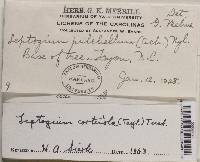 HERB. G. K. MERRILL
HERBARIUM OF YALE UNIVERSITY
LICHENS OF THE CAROLINAS
Det
G.
Leptogium pulchellum (Ach.) Nyl.
Base of tree - Tryon, N.C.
Jan. 12, 1928.
9
Leptogium corticola (Tayl.) Tuck.
H. A. Sierk 1963